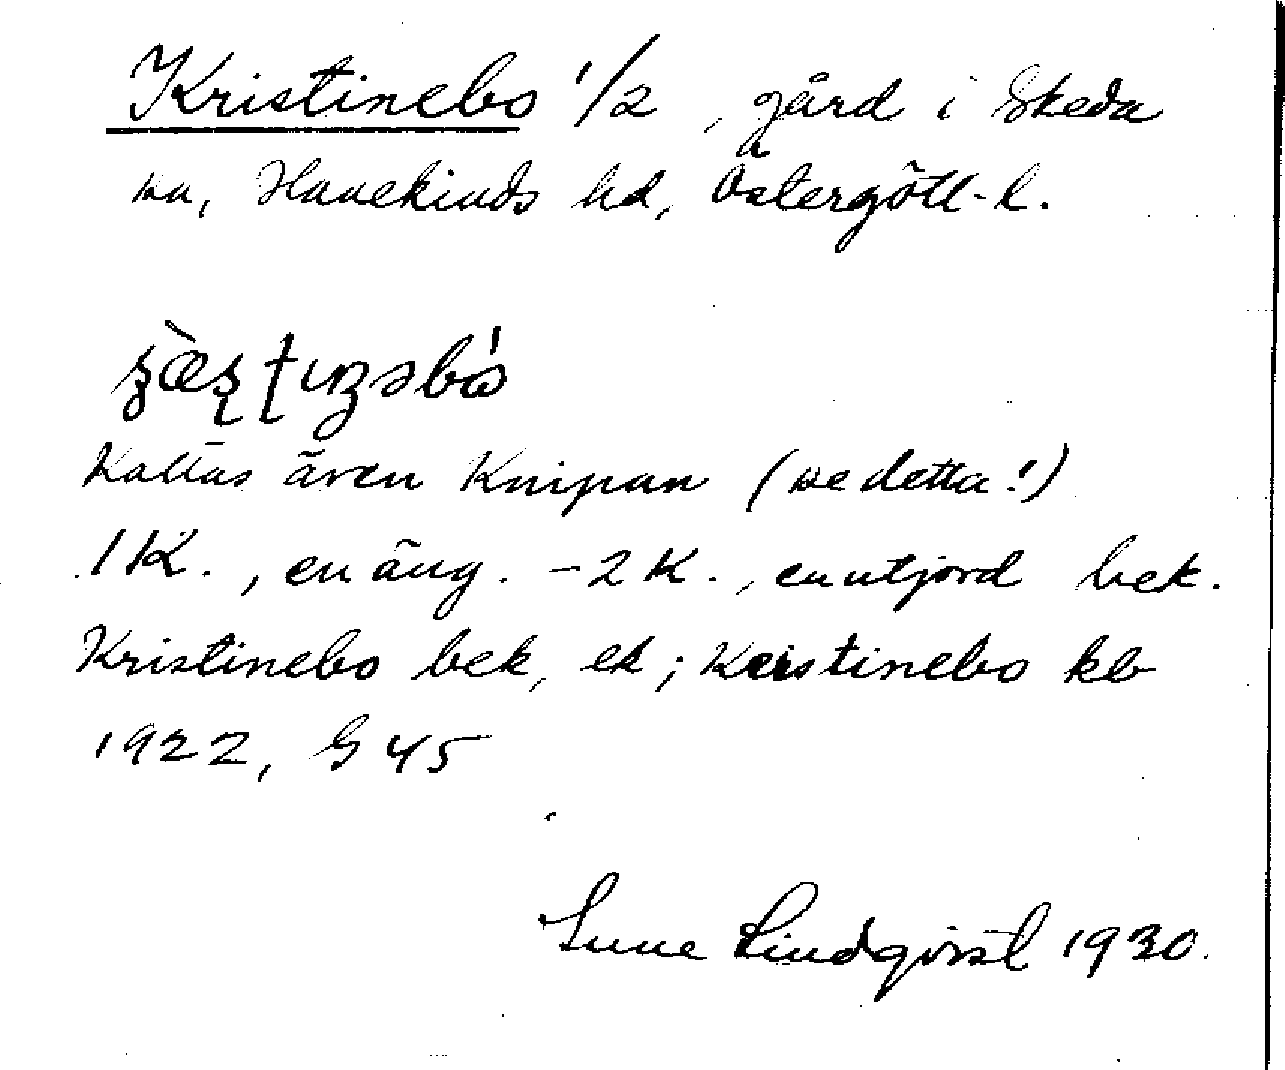 Kristinebo 1/2, gård i Skeda
sn, Hanekinds hd, Östergötl. l.
Kallas även Knipan (se detta!)
1 K., en äng. – 2 K., en utjord bek.
Kristinebo bek, ek; Kristinebo kb
1922, G 45
Sune Lindqvist 1930.